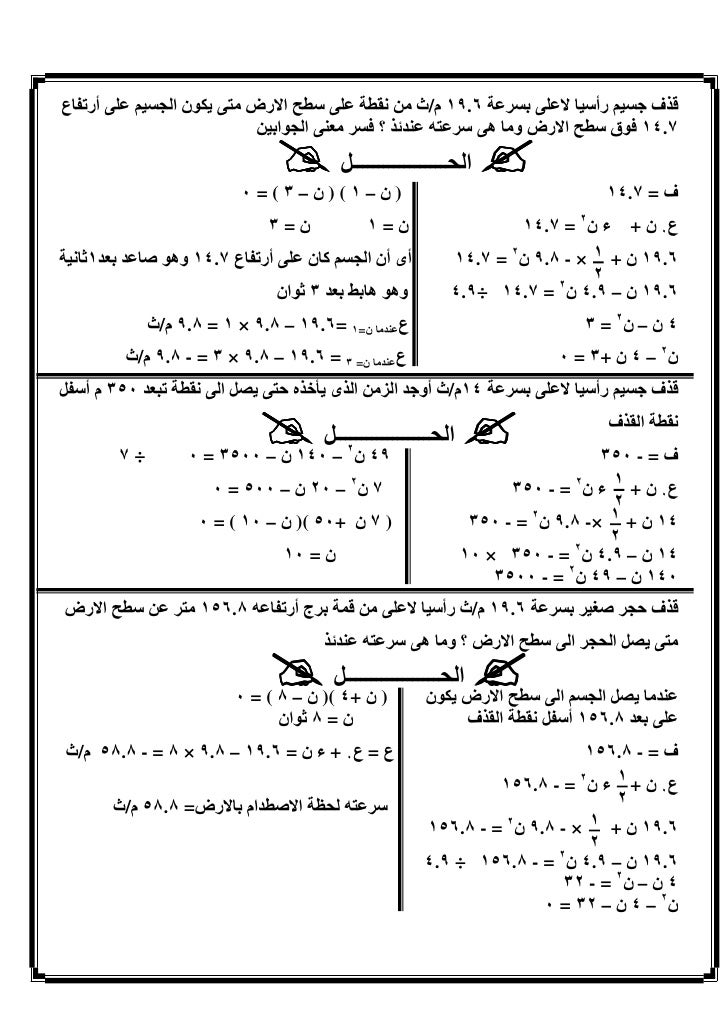 قذف جسيم رأسيا لاعلى بسرعة ١٩.٦ م/ث من نقطة على سطح الارض متى يكون الجسيم على أرتفاع
١٤.٧ فوق سطح الارض وما هى سرعته عندئذ ؟ فسر معنى الجوابين
الحـــــــــــــل
ف = ١٤.٧
ع. ن + ء ن٢ = ١٤.٧
١٩.٦ ن + ١/٢ × - ٩.٨ ن٢ = ١٤.٧
١٩.٦ ن – ٤.٩ ن٢ = ١٤.٧ ÷ ٤.٩
٤ ن – ن٢ = ٣
ن٢ – ٤ ن + ٣ = ٠
( ن – ١ ) ( ن – ٣ ) = ٠
ن = ١ ن = ٣
أى أن الجسم كان على أرتفاع ١٤.٧ وهو صاعد بعد ١ ثانية
وهو هابط بعد ٣ ثوان
ع عندما ن=١ = ١٩.٦ – ٩.٨ × ١ = ٩.٨ م/ث
ع عندما ن= ٣ = ١٩.٦ – ٩.٨ × ٣ = - ٩.٨ م/ث
قذف جسيم رأسيا لاعلى بسرعة ١٤م/ث أوجد الزمن الذى يأخذه حتى يصل الى نقطة تبعد ٣٥٠ م أسفل
نقطة القذف
الحـــــــــــــل
ف = - ٣٥٠
ع. ن + ١/٢ ء ن٢ = - ٣٥٠
١٤ ن + ١/٢ ×- ٩.٨ ن٢ = - ٣٥٠
١٤ ن – ٤.٩ ن٢ = - ٣٥٠ × ١٠
١٤٠ ن – ٤٩ ن٢ = - ٣٥٠٠
٤٩ ن٢ – ١٤٠ ن – ٣٥٠٠ = ٠ ÷ ٧
٧ ن٢ – ٢٠ ن – ٥٠٠ = ٠
( ٧ ن + ٥٠ )( ن – ١٠ ) = ٠
ن = ١٠
قذف حجر صغير بسرعة ١٩.٦ م/ث رأسيا لاعلى من قمة برج أرتفاعه ١٥٦.٨ متر عن سطح الارض
متى يصل الحجر الى سطح الارض ؟ وما هى سرعته عندئذ
الحـــــــــــــل
عندما يصل الجسم الى سطح الارض يكون
على بعد ١٥٦.٨ أسفل نقطة القذف
ف = - ١٥٦.٨
ع. ن + ١/٢ ء ن٢ = - ١٥٦.٨
١٩.٦ ن + ١/٢ × - ٩.٨ ن٢ = - ١٥٦.٨
١٩.٦ ن – ٤.٩ ن٢ = - ١٥٦.٨ ÷ ٤.٩
٤ ن – ن٢ = - ٣٢
ن٢ – ٤ ن – ٣٢ = ٠
( ن + ٤ )( ن – ٨ ) = ٠
ن = ٨ ثوان
ع = ع. + ء ن = ١٩.٦ – ٩.٨ × ٨ = - ٥٨.٨ م/ث
سرعته لحظة الاصطدام بالارض= ٥٨.٨ م/ث